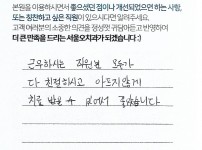 본원을 이용하시면서 좋으셨던 점이나 개선되었으면 하는 사항,
또는 칭찬하고 싶은 직원이 있으시다면 말씀해주세요.
고객 여러분의 소중한 의견을 정성껏 귀담아듣고 반영하여
더 큰 만족을 드리는 서울오치과가 되겠습니다 :)
근무하시는 직원분 모두가
다 친절하시고 아프지않게
치료 받을 수 있어서 좋았습니다